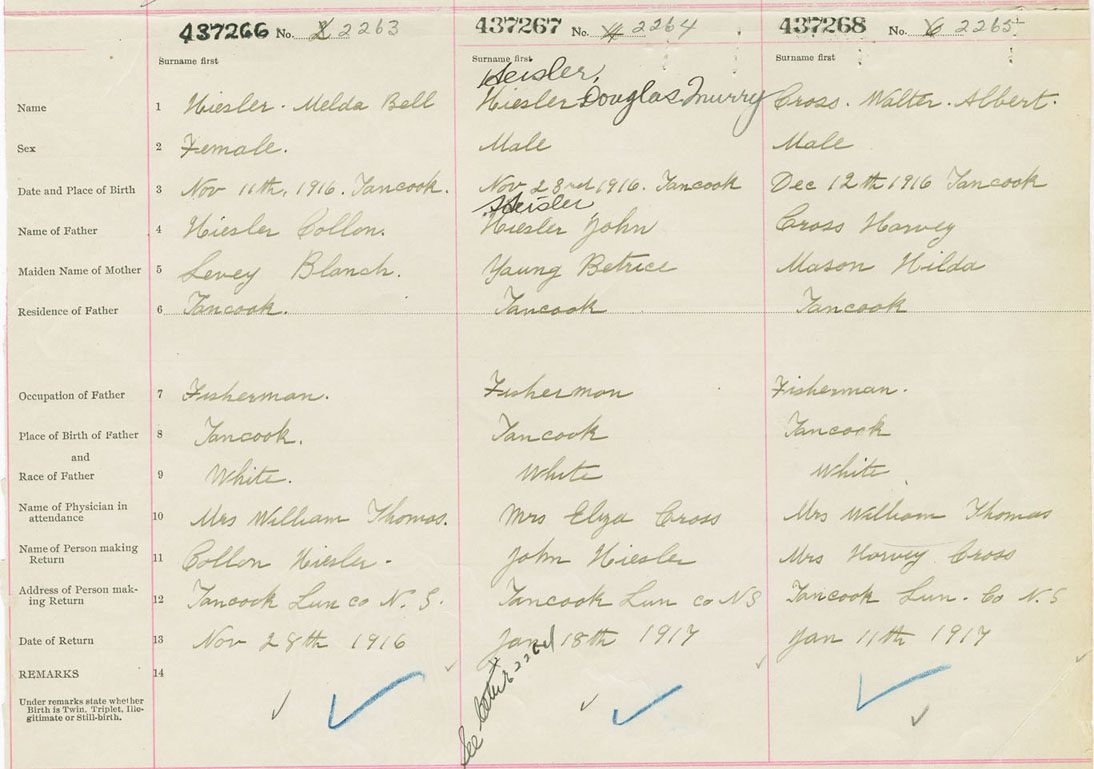 437266 No. 2 2263 437267 No. 4 2264 437268 No. 6 2265
Surname first Surname first Surname first
Heisler,
Name 1 Hiesler. Melda Bell Hiesler Douglas Murry Cross. Walter. Albert.
Sex 2 Female. Male Male
Date and Place of Birth 3 Nov 11th, 1916. Tancook. Nov 23rd 1916. Tancook Dec 12th 1916 Tancook
Heisler
Name of Father 4 Hiesler Collon. Hiesler John Cross Harvey
Maiden Name of Mother 5 Levey Blanch. Young Betrice Mason Hilda
Residence of Father 6 Tancook. Tancook Tancook
Occupation of Father 7 Fisherman. Fisherman Fisherman.
Place of Birth of Father 8 Tancook. Tancook Tancook
and
Race of Father 9 White. White White
Name of Physician in
attendance 10 Mrs William Thomas. Mrs Eliza Cross Mrs William Thomas
Name of Person making
Return 11 Collon Hiesler. John Hiesler Mrs Harvey Cross
Address of Person mak-
ing Return 12 Tancook Lun co N. S. Tancook Lun co NS Tancook Lun. Co N.S
Date of Return 13 Nov 28th 1916 Jan 18th 1917 Jan 11th 1917
REMARKS 14
Under remarks state whether
Birth is Twin, Triplet, Ille-
gitimate or Still-birth.
See letter 2264